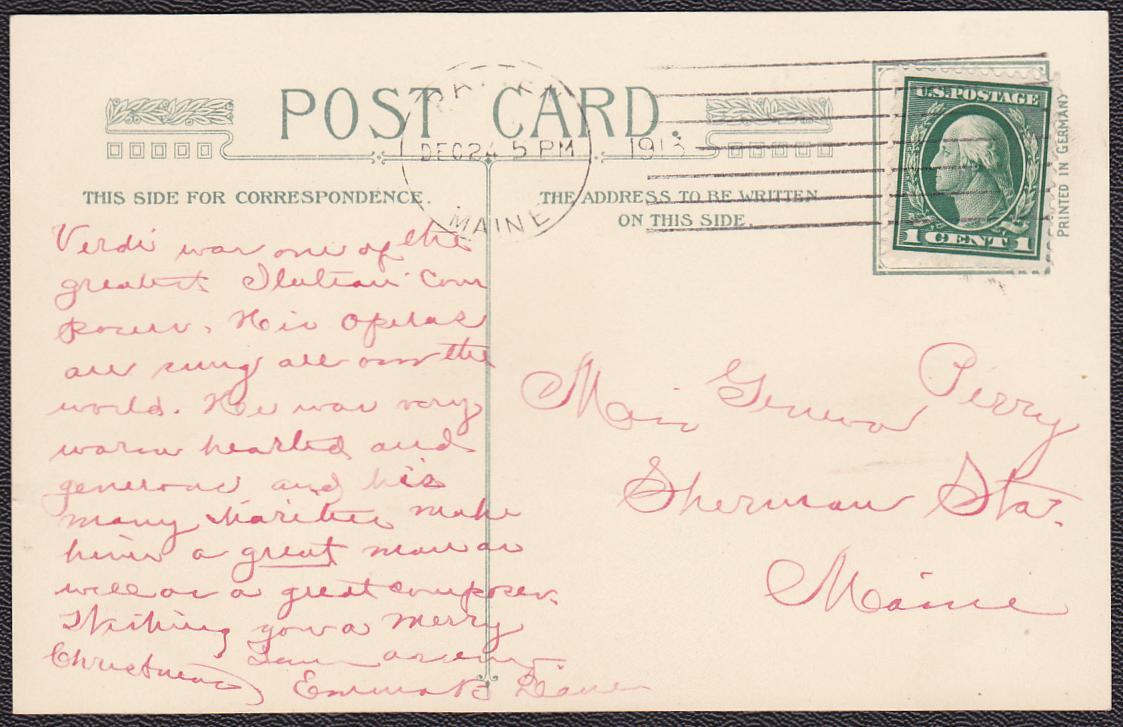 POST CARD
DEC 24 5 PM 1913
MAINE
THIS SIDE FOR CORRESPONDENCE.
THE ADDRESS TO BE WRITTEN
ON THIS SIDE.
U.S. POSTAGE
1 CENT 1
PRINTED IN GERMANY
Verdi was one of the
greatest Italian Com
posers. His Operas
are sung all over the
world. He was very
warm hearted and
generous and his
many charities make
him a great man as
well as a great composer.
Wishing you a Merry
Christmas, I am as ever
Emma B
Miss Geneva Perry
Sherman Sta.
Maine